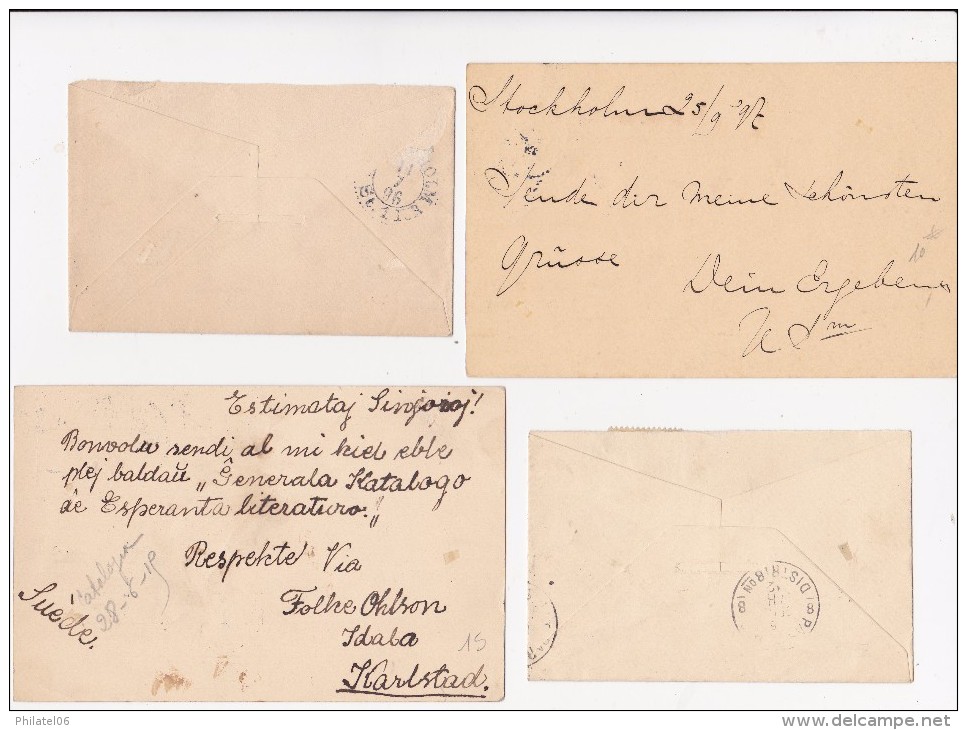 Stockholm 25/9 97
Sende dir meine schönsten
Grüsse
Dein Ergebens
10
Estimataj Sinjoroj!
Bonvolu sendi al mi kiel eble
plej baldaŭ „Ĝenerala Katalogo
de Esperanta literaturo.”
Respekte Via
Folke Ohlson
Idaba
Karlstad.
Suède.
15
96
DISTRIBON
Philatel06
www.delcampe.net